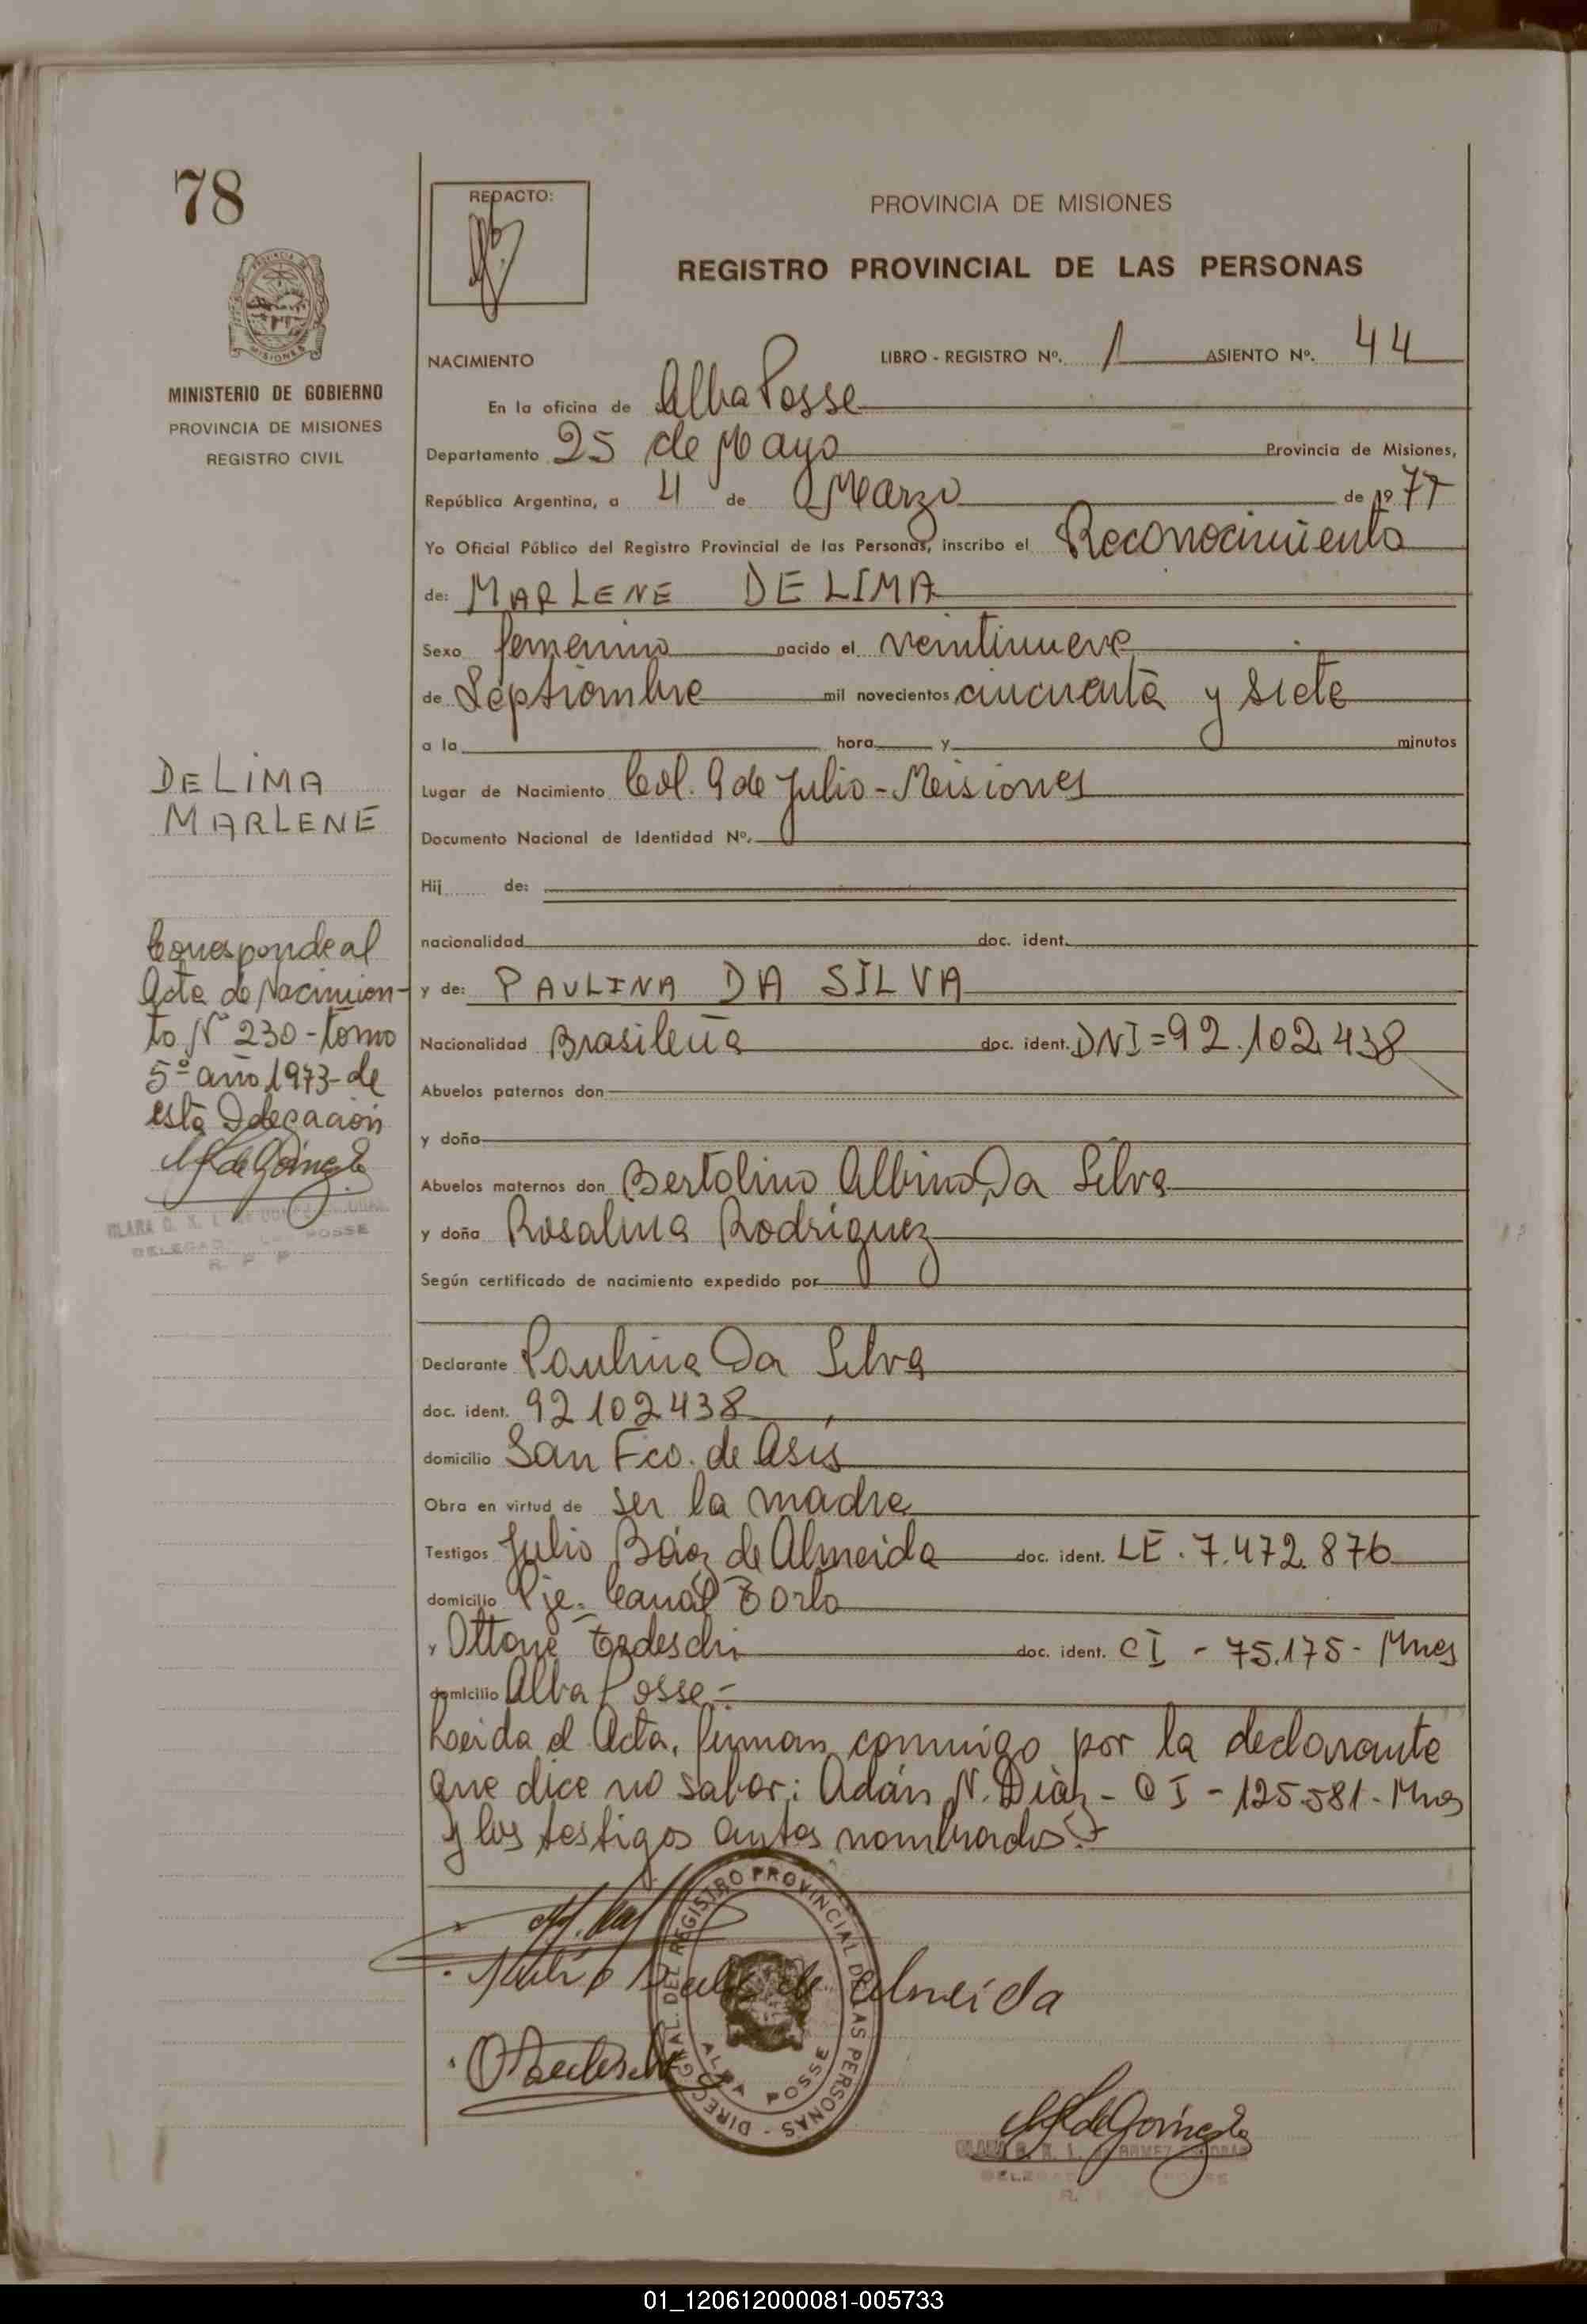 78
REDACTO:
PROVINCIA DE MISIONES
REGISTRO PROVINCIAL DE LAS PERSONAS
MISIONES
MINISTERIO DE GOBIERNO
PROVINCIA DE MISIONES
REGISTRO CIVIL
NACIMIENTO LIBRO - REGISTRO Nº. 1 ASIENTO Nº. 44
En la oficina de Alba Posse
Departamento 25 de Mayo Provincia de Misiones,
República Argentina, a 4 de Marzo de 1977
Yo Oficial Público del Registro Provincial de las Personas, inscribo el Reconocimiento
de: MARLENE DE LIMA
Sexo femenino nacido el veintinueve
de Septiembre mil novecientos cincuenta y siete
a la hora y minutos
Lugar de Nacimiento Col. 9 de Julio - Misiones
Documento Nacional de Identidad Nº.
Hij de:
nacionalidad doc. ident.
y de: PAULINA DA SILVA
Nacionalidad Brasileña doc. ident. DNI = 92.102.438
Abuelos paternos don
y doña
Abuelos maternos don Bertolino Albino Da Silva
y doña Rosalina Rodriguez
Según certificado de nacimiento expedido por
Declarante Paulina Da Silva
doc. ident. 92102438
domicilio San Fco. de Asís
Obra en virtud de ser la madre
Testigos Julio Báez de Almeida doc. ident. LE. 7.472.876
domicilio Pje. Canal Torto
y Ottone Tedeschi doc. ident. CI - 75.175 - Mnes
domicilio Alba Posse -
Leida el Acta, firman conmigo por la declarante
que dice no saber: Adán N. Diaz - CI - 125.581 - Mnes
y los testigos antes nombrados.
DE LIMA
MARLENE
Corresponde al
Acta de Nacimien-
to Nº 230 - tomo
5º año 1973 - de
esta Delegación
POSSE
de Almeida
DIREC. GRAL. DEL REGISTRO PROVINCIAL DE LAS PERSONAS -
ALBA POSSE
01_120612000081-005733